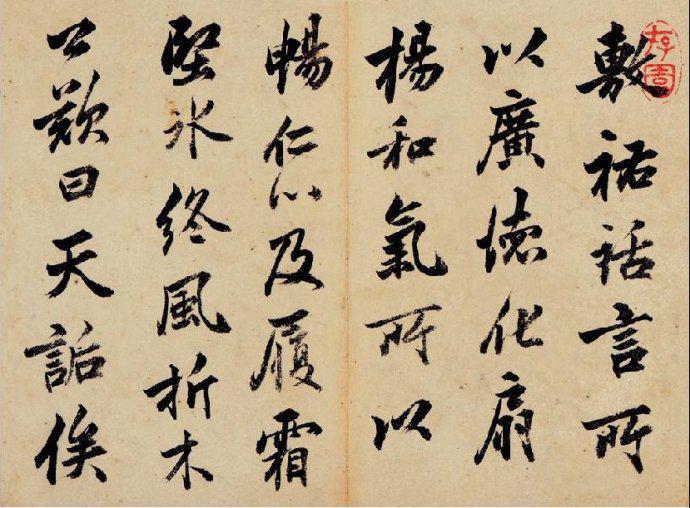 敷祐話言所
以廣德化扇
楊和氣所以
暢仁心及履霜
堅冰終風折木
公歎曰天詬俟